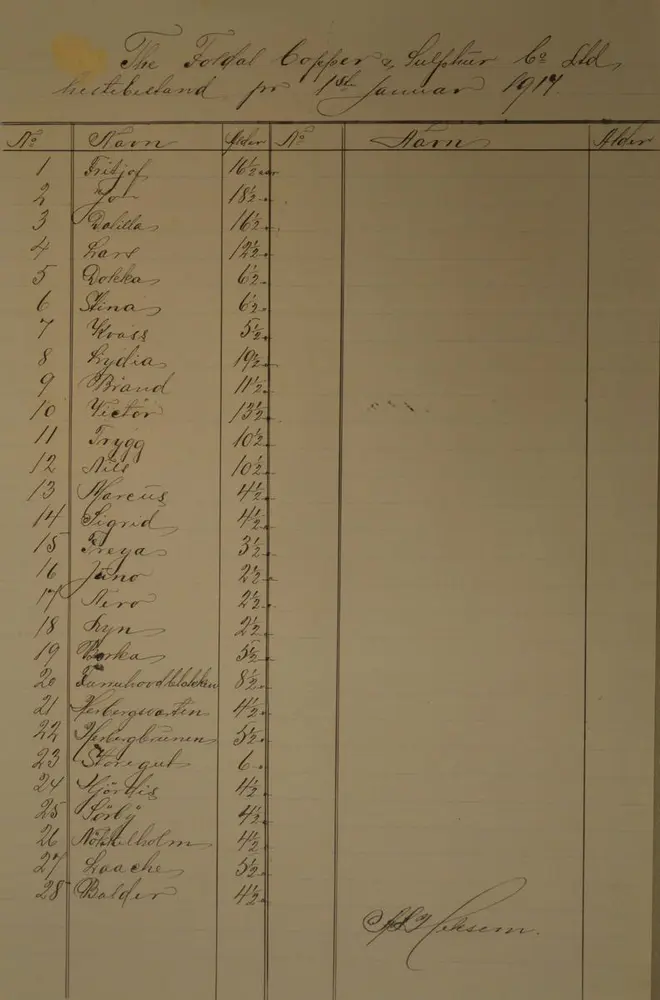 The Foldal Copper & Sulphur Co Ltd
hestebestand pr 1ste Januar 1917.
No Navn Alder No Navn Alder
1 Fritjof 16½ aar
2 Jo 18½ "
3 Dalilla 16½ "
4 Lars 12½ "
5 Dokka 6½ "
6 Stina 6½ "
7 Kvass 5½ "
8 Lydia 19½ "
9 Brand 11½ "
10 Victor 13½ "
11 Trygg 10½ "
12 Nils 10½ "
13 Marcus 4½ "
14 Sigrid 4½ "
15 Freya 3½ "
16 Juno 2½ "
17 Nero 2½ "
18 Lyn 2½ "
19 Borka 5½ "
20 8½ "
21 Herbergsvarten 4½ "
22 Herbergbrunen 5½ "
23 Storegut 6 "
24 Hjördis 4½ "
25 Sörby 4½ "
26 Nökkelholm 4½ "
27 Laache 5½ "
28 Balder 4½ "